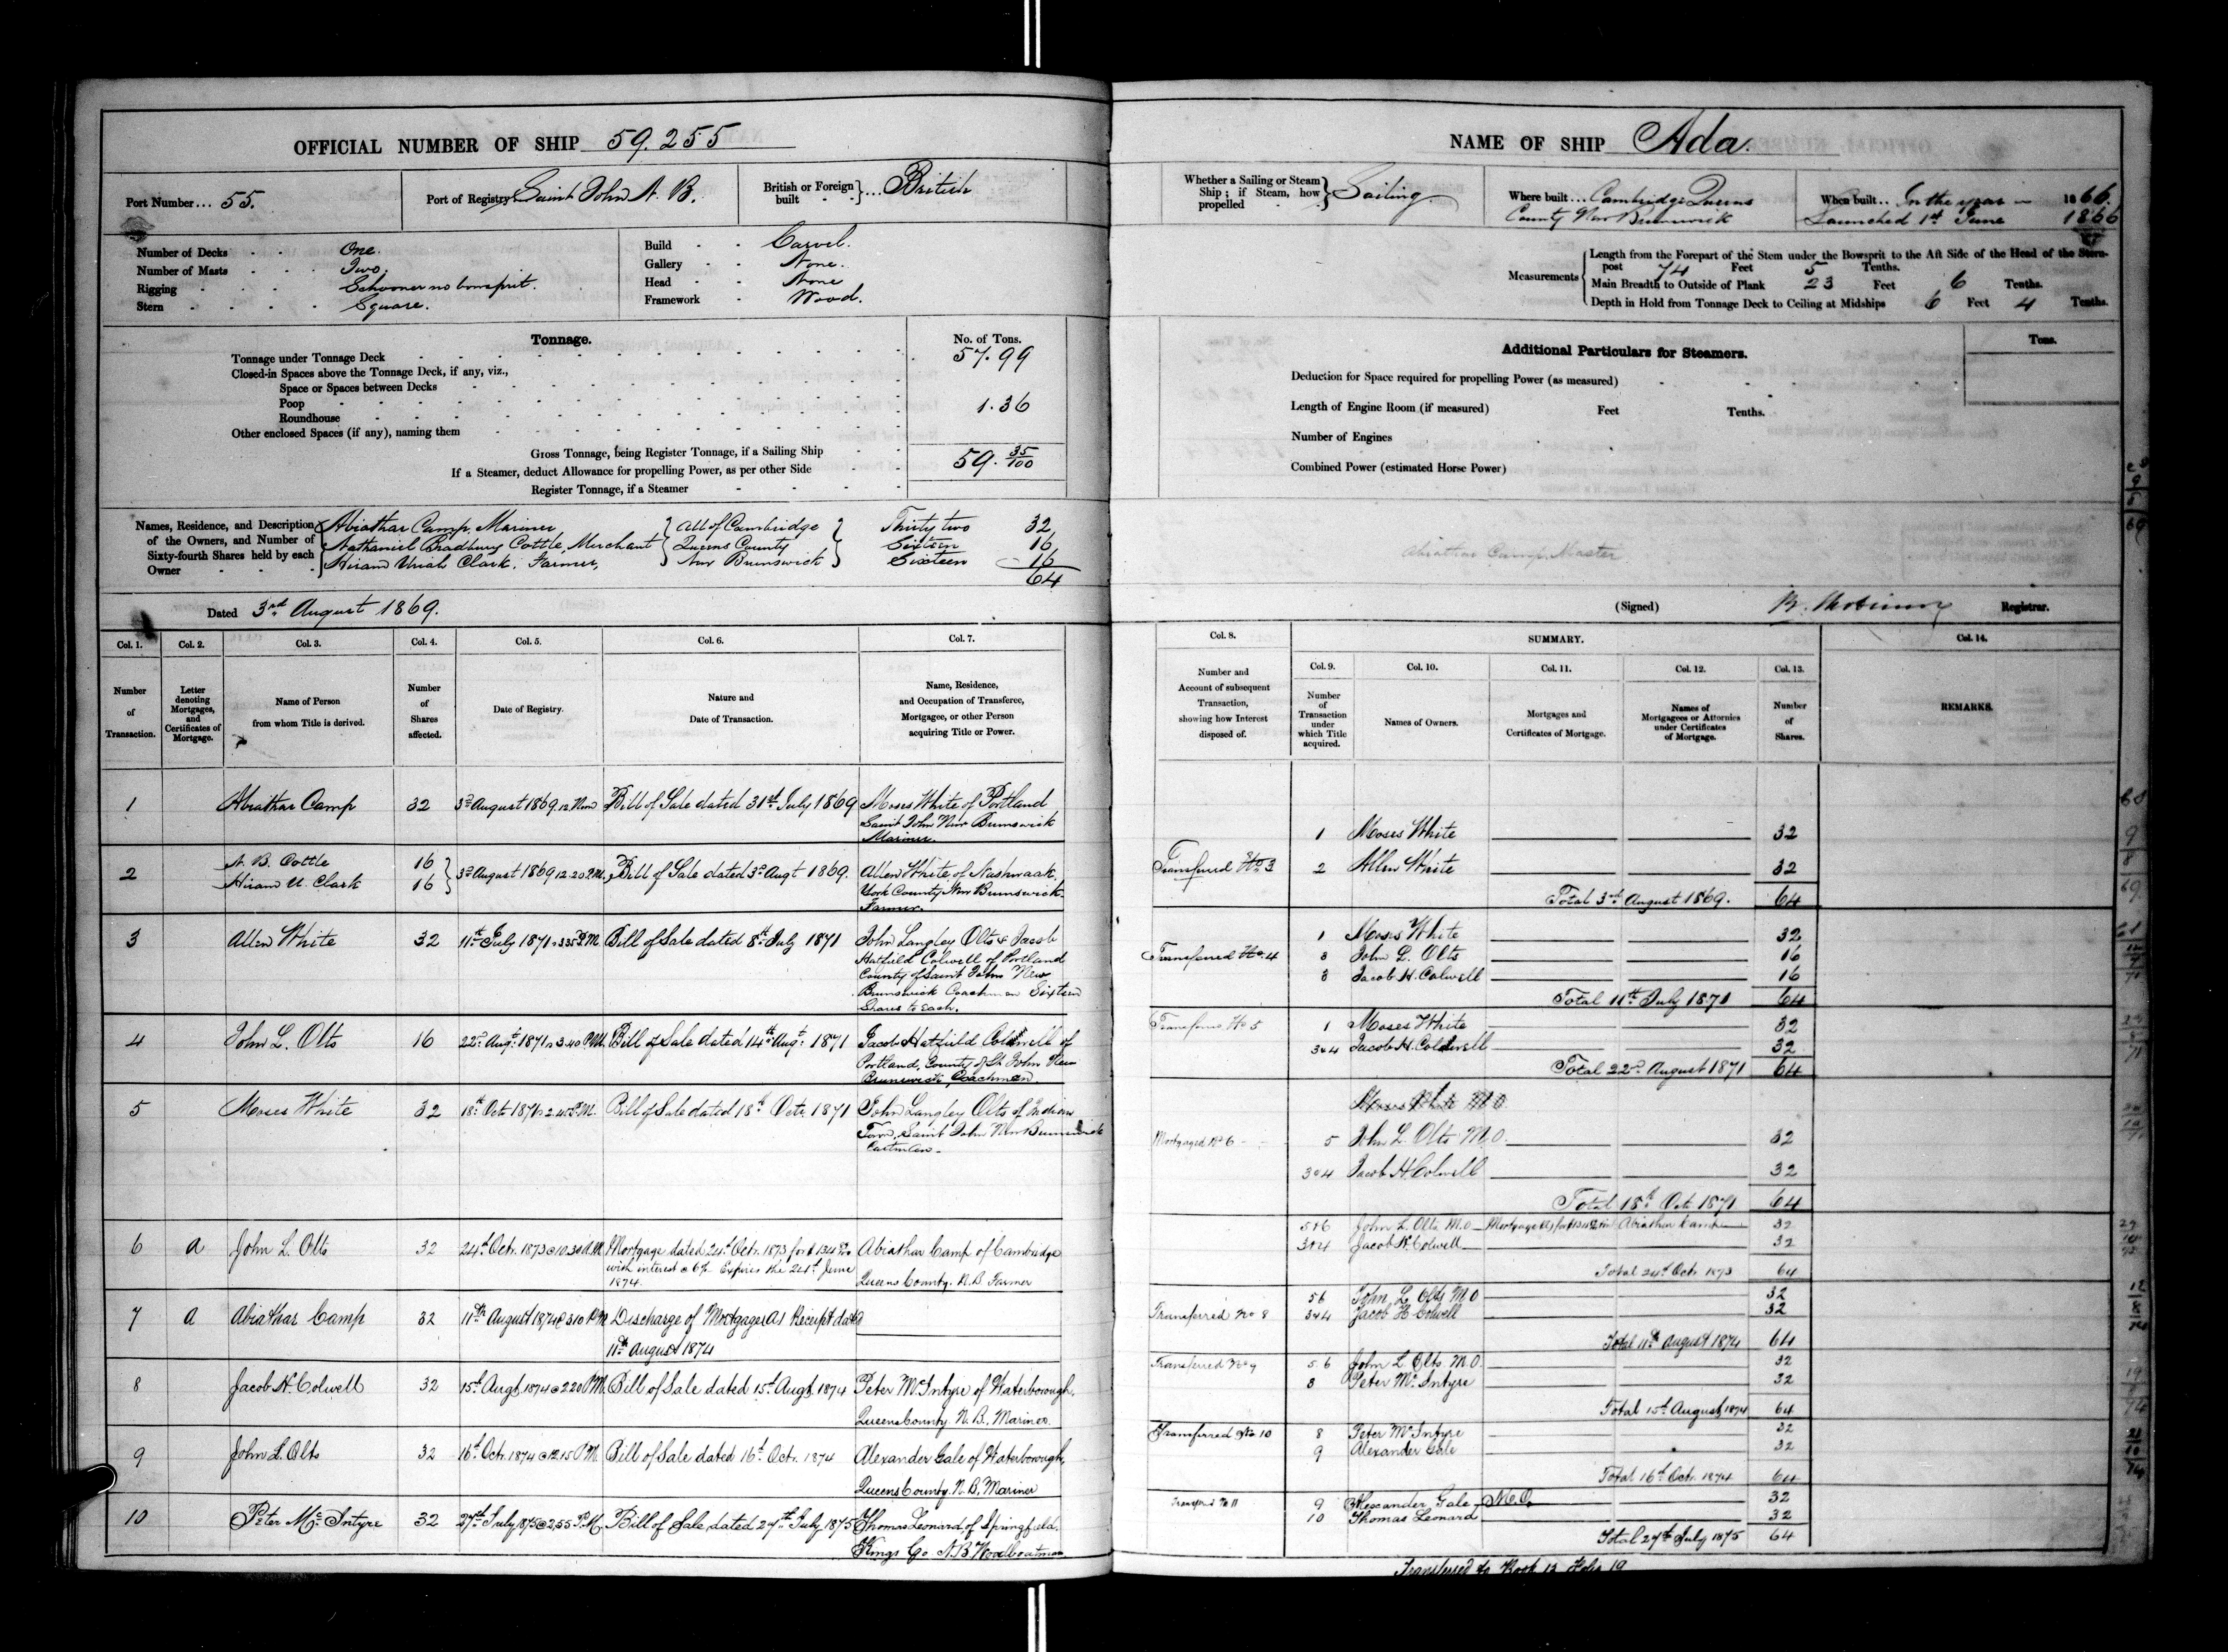 OFFICIAL NUMBER OF SHIP 59.255
Port Number ... 55.
Port of Registry Saint John N. B.
British or Foreign built } ... British
Number of Decks One.
Number of Masts Two.
Rigging Schooner no bowsprit.
Stern Square.
Build Carvel.
Gallery None.
Head None
Framework Wood.
Tonnage. No. of Tons.
Tonnage under Tonnage Deck 57.99
Closed-in Spaces above the Tonnage Deck, if any, viz.,
Space or Spaces between Decks
Poop 1.36
Roundhouse
Other enclosed Spaces (if any), naming them
Gross Tonnage, being Register Tonnage, if a Sailing Ship 59. 35/100
If a Steamer, deduct Allowance for propelling Power, as per other Side
Register Tonnage, if a Steamer
Names, Residence, and Description of the Owners, and Number of Sixty-fourth Shares held by each Owner
Abiathar Camp, Mariner } All of Cambridge } Thirty two 32
Nathaniel Bradbury Cottle, Merchant } Queens County } Sixteen 16
Hiram Uriah Clark, Farmer, } New Brunswick } Sixteen 16
64
Dated 3rd August 1869.
Col. 1. Col. 2. Col. 3. Col. 4. Col. 5. Col. 6. Col. 7.
Number of Transaction.
Letter denoting Mortgages, and Certificates of Mortgage.
Name of Person from whom Title is derived.
Number of Shares affected.
Date of Registry.
Nature and Date of Transaction.
Name, Residence, and Occupation of Transferee, Mortgagee, or other Person acquiring Title or Power.
1 Abiathar Camp 32 3rd August 1869 12 Noon Bill of Sale dated 31st July 1869 Moses White of Portland
Saint John New Brunswick
Mariner.
2 N. B. Cottle 16
Hiram U. Clark 16 } 3rd August 1869 12.20 P.M. Bill of Sale dated 3rd Augt 1869. Allen White of Nashwaak,
York County New Brunswick
Farmer.
3 Allen White 32 11th July 1871 3.35 P.M. Bill of Sale dated 8th July 1871 John Langley Olts & Jacob
Hatfield Colwell of Portland
County of Saint John New
Brunswick Coachmen Sixteen
Shares to Each.
4 John L. Olts 16 22nd Augt 1871 3.40 P.M. Bill of Sale dated 14th Augt 1871 Jacob Hatfield Coldwell of
Portland, County of St. John New
Brunswick, Coachman.
5 Moses White 32 18th Octr 1871 2.45 P.M. Bill of Sale dated 18th Octr. 1871 John Langley Olts of Indian
Town, Saint John New Brunswick
6 A John L. Olts 32 24th Octr. 1873 @ 10.30 A.M. Mortgage dated 24th Octr. 1873 for $134 Abiathar Camp of Cambridge
with interest @ 6% Expires the 24th June
1874. Queens County. N.B Farmer
7 A Abiathar Camp 32 11th August 1874 @ 3.10 P.M. Discharge of Mortgage A1 Receipt dated
11th August 1874
8 Jacob H. Colwell 32 15th Augt. 1874 @ 2.20 P.M. Bill of Sale dated 15th Augt. 1874 Peter McIntyre of Waterborough,
Queens County. N.B., Mariner.
9 John L. Olts 32 16th Octr. 1874 @ 12.15 P.M. Bill of Sale dated 16th Octr. 1874 Alexander Gale of Waterborough,
Queens County. N.B, Mariner
10 Peter McIntyre 32 27th July 1875 @ 2.55 P.M. Bill of Sale dated 27th July 1875 Thomas Leonard of Springfield,
Kings Co N.B Woodboatman
NAME OF SHIP Ada.
Whether a Sailing or Steam Ship; if Steam, how propelled } Sailing
Where built ... Cambridge Queens
County New Brunswick
When built .. In the year 1866.
Launched 1st June 1866
Measurements
Length from the Forepart of the Stem under the Bowsprit to the Aft Side of the Head of the Stern-
post 74 Feet 5 Tenths.
Main Breadth to Outside of Plank 23 Feet 6 Tenths.
Depth in Hold from Tonnage Deck to Ceiling at Midships 6 Feet 4 Tenths.
Additional Particulars for Steamers. Tons.
Deduction for Space required for propelling Power (as measured)
Length of Engine Room (if measured) Feet Tenths.
Number of Engines
Combined Power (estimated Horse Power)
Abiathar Camp, Master
(Signed) Registrar.
Col. 8. SUMMARY. Col. 14.
Col. 9. Col. 10. Col. 11. Col. 12. Col. 13.
Number and Account of subsequent Transaction, showing how Interest disposed of.
Number of Transaction under which Title acquired.
Names of Owners.
Mortgages and Certificates of Mortgage.
Names of Mortgagees or Attornies under Certificates of Mortgage.
Number of Shares.
REMARKS.
1 Moses White 32
Transferred No. 3 2 Allen White 32
Total 3rd August 1869. 64
1 Moses White 32
Transferred No. 4 3 John L. Olts 16
3 Jacob H. Colwell 16
Total 11th July 1871 64
Transferred No 5 1 Moses White 32
3&4 Jacob H. Coldwell 32
Total 22nd August 1871 64
Moses White M.O
Mortgaged No 6 5 John L. Olts M.O. 32
3&4 Jacob H. Colwell 32
Total 18th Oct. 1871 64
5&6 John L. Olts M.O Mortgage Abiathar Camp 32
3&4 Jacob H. Colwell 32
Total 24th Octr. 1873 64
5 6 John L. Olts M O 32
Transferred No 8 3&4 Jacob H Colwell 32
Total 11th August 1874 64
Transferred No 9 5.6 John L. Olts. M.O. 32
8 Peter McIntyre 32
Total 15th August 1874 64
Transferred No 10 8 Peter McIntyre 32
9 Alexander Gale 32
Total 16th Octr. 1874 64
Transfd No 11 9 Alexander Gale, M.O. 32
10 Thomas Leonard 32
Total 27th July 1875 64
Transferred to Book 13 Folio 19